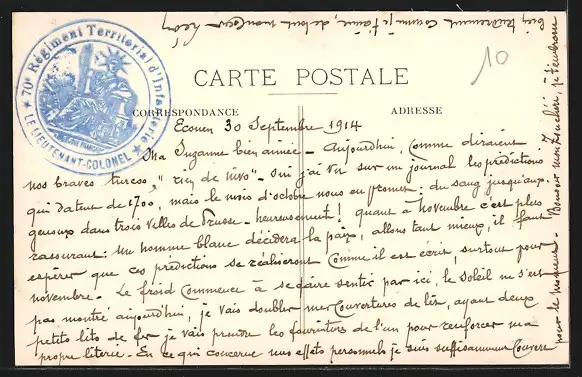 70e Régiment Territorial d'Infanterie
LE LIEUTENANT-COLONEL
10
CARTE POSTALE
CORRESPONDANCE
ADRESSE
Ecouen 30 Septembre 1914
Ma Suzanne bien aimée - Aujourdhui, comme diraient
nos braves turcos, "rien de nivo" - Oui j'ai vu sur un journal les prédictions
qui datent de 1700, mais le mois d'octobre nous en promet: du sang jusqu'aux
genoux dans trois villes de Prusse - heureusement! quant à Novembre c'est plus
rassurant: un homme blanc décidera la paix, allons tant mieux, il faut
espérer que ces prédictions se réaliseront comme il est écrit, surtout pour
novembre. Le froid commence à se faire sentir par ici, le Soleil ne s'est
pas montré aujourd'hui, je vais doubler mes couvertures de lit, ayant deux
petits lits de fer je vais prendre les fournitures de l'un pour renforcer ma
propre literie - En ce qui concerne mes effets personnels je suis suffisamment couvert
pour le moment - Bonsoir mon Zouchéri, je t'embrasse
bien tendrement comme je t'aime, de tout mon cœur Léon